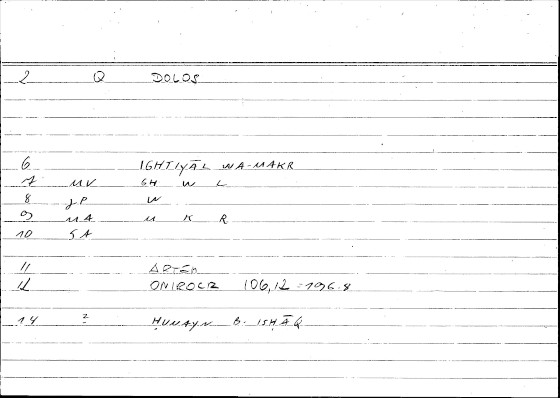 2 Q DOLOS
6 IGHTIYĀL WA-MAKR
7 MV GH W L
8 JP W
9 MA M K R
10 SA
11 ARTEM
12 ONIROCR 106,12 = 196.8
14 2 ḤUNAYN B. ISḤĀQ